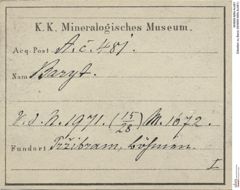 K. K. Mineralogisches Museum.
Acq. Post A.c. 481.
Nam Baryt.
V. d. N. 1971. (15/28) M. 1672.
Fundort Přibram, Böhmen.
I